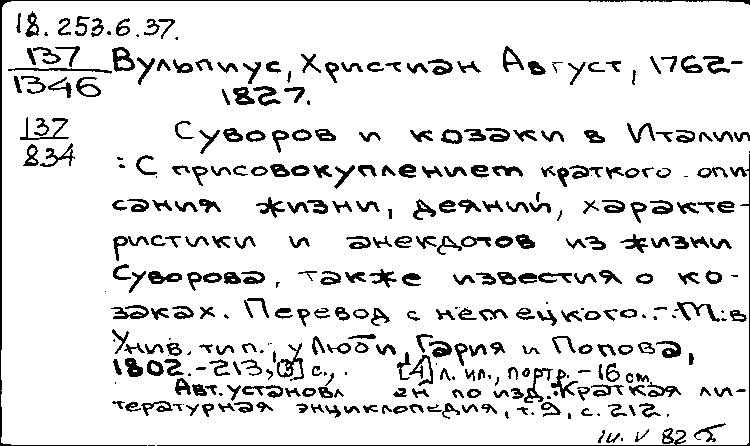 18.253.6.37.
137
1346
Вульпиус, Христиан Август, 1762-
1827.
137
834
Суворов и козаки в Италии
: С присовокуплением краткого опи
сания жизни, деяний, характе-
ристики и анекдотов из жизни
Суворова, также известия о ко-
заках. Перевод с немецкого.-М.: в
Унив. тип., у Люби, Гария и Попова,
1802.-213, [3] с., [4] л. ил., портр.-16 cm
Авт. установл ен по изд.: Краткая ли-
тературная энциклопедия, т. 9, с. 212.
V 82